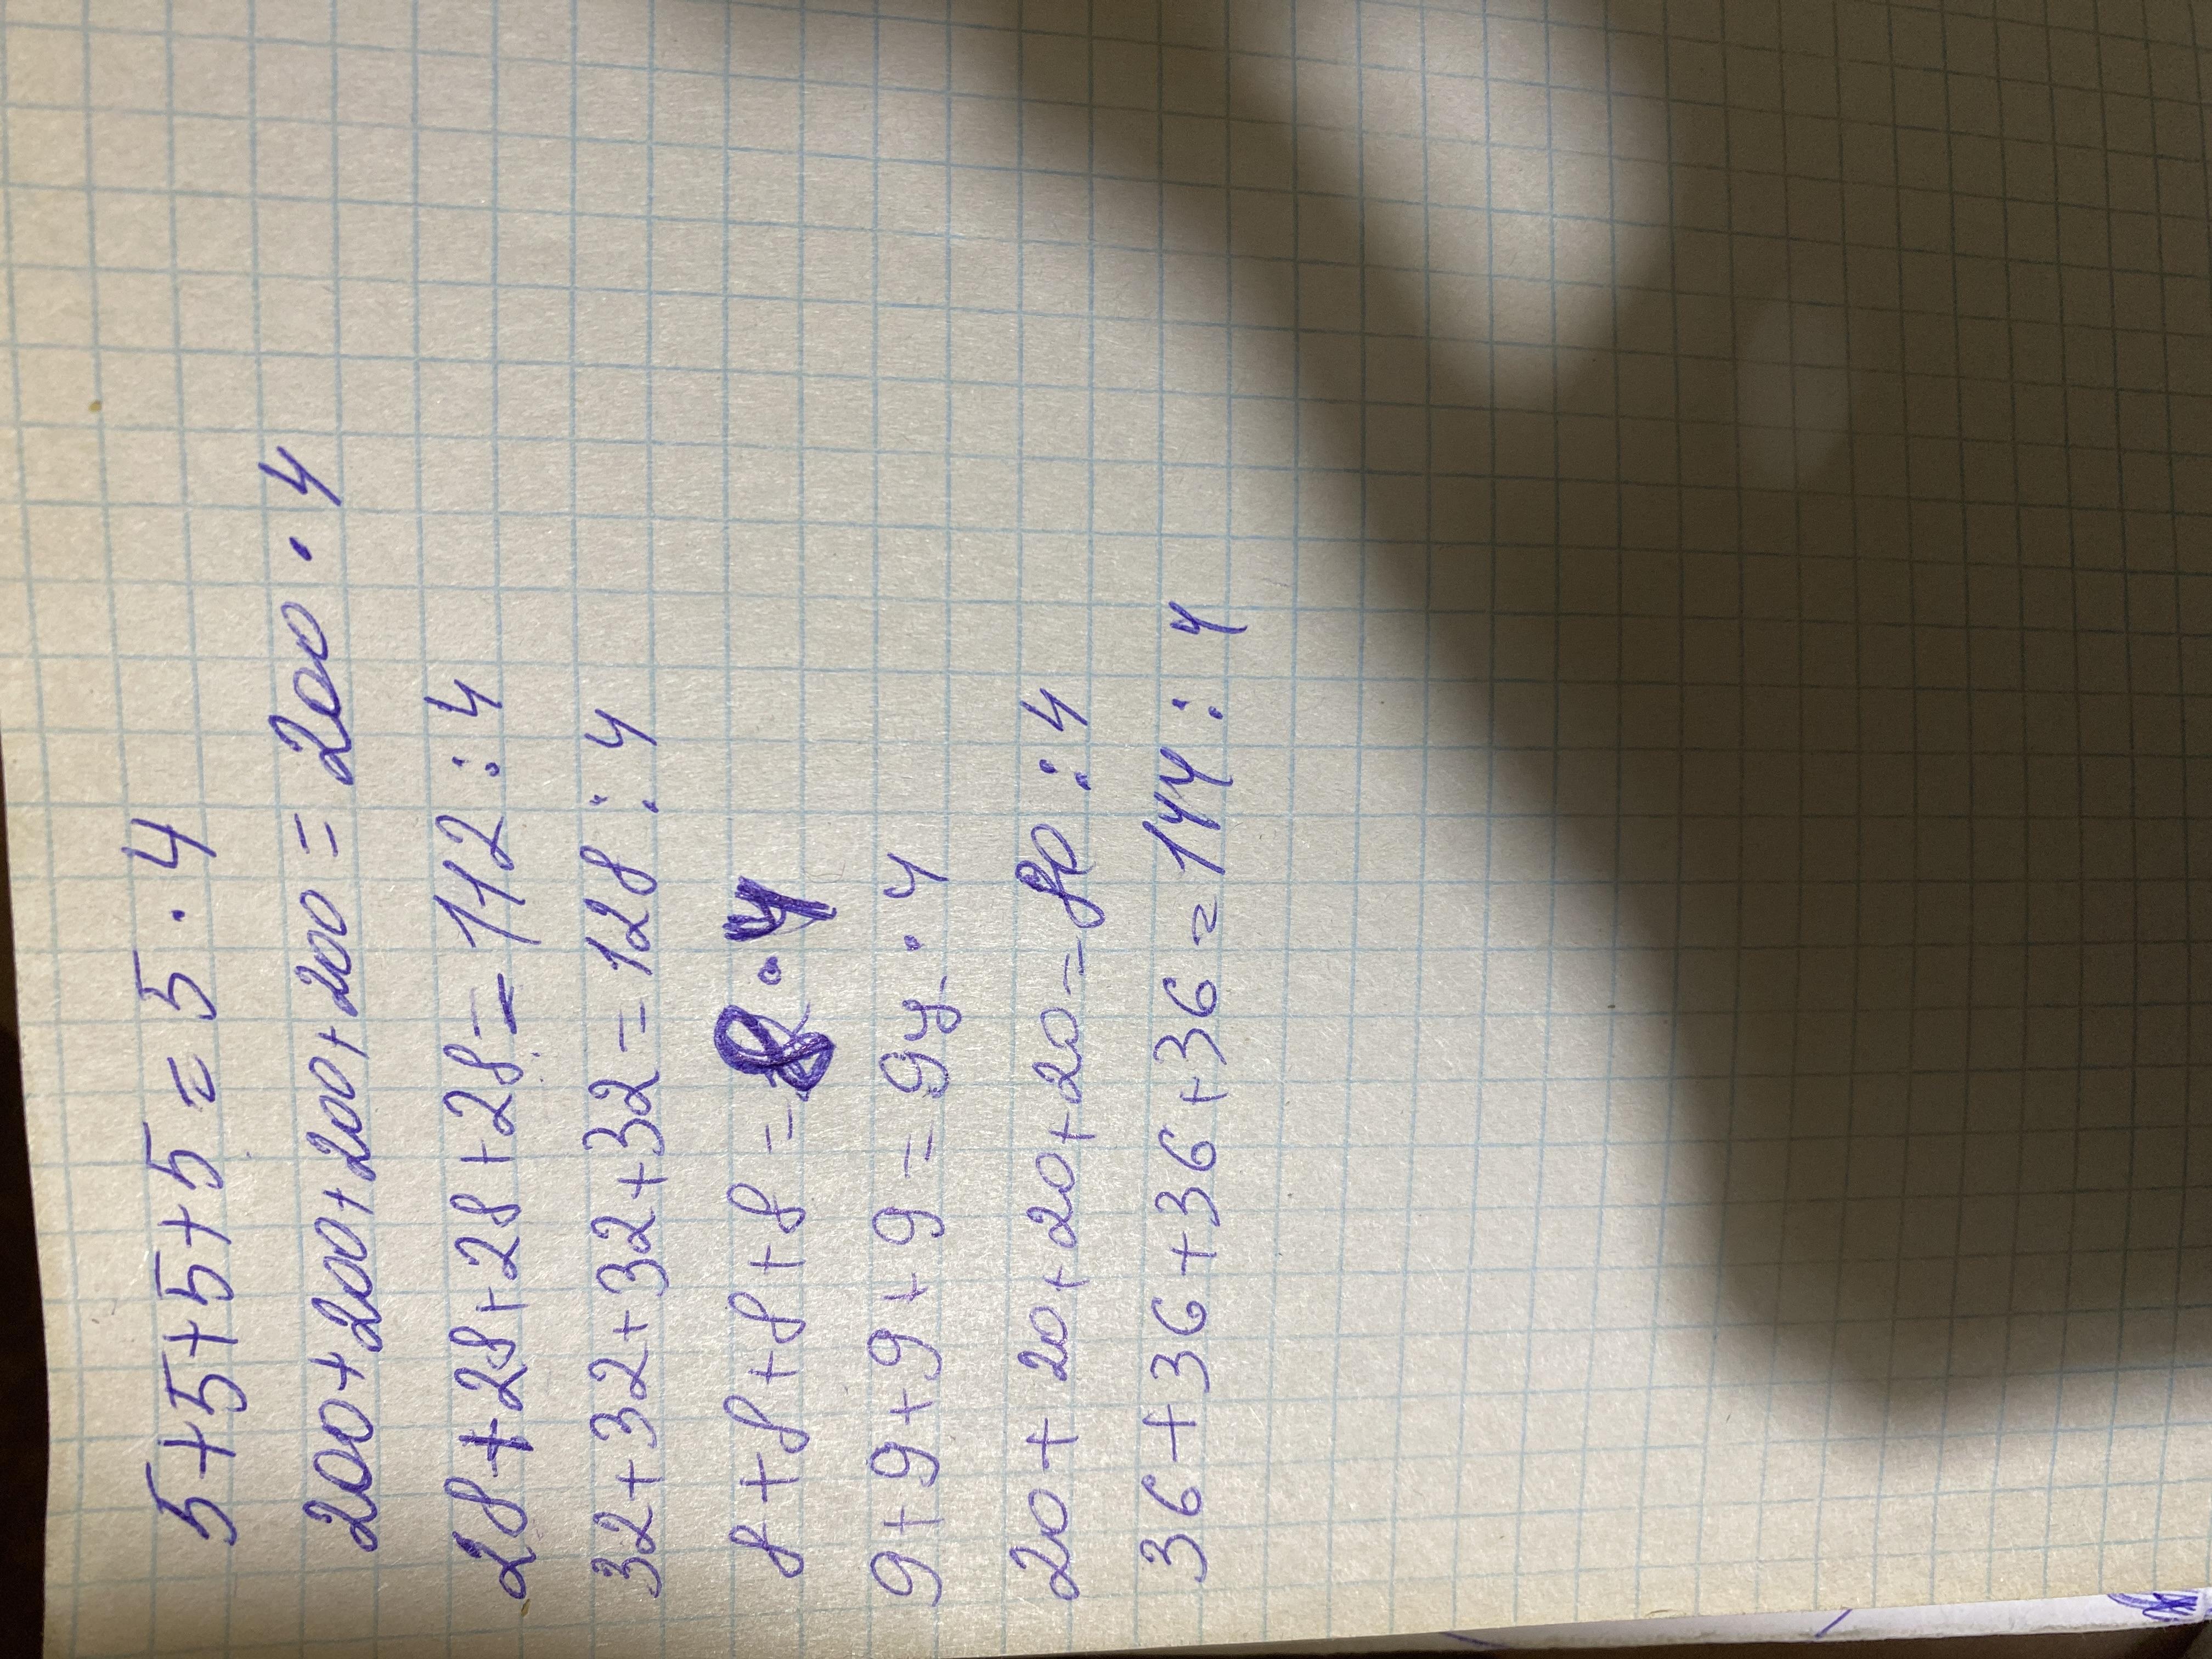 5+5+5+5=5·4
200+200+200+200=200·4
28+28+28+28=112:4
32+32+32+32=128:4
8+8+8+8=8·4
9+9+9+9=9у·4
20+20+20+20=80:4
36+36+36+36=144:4